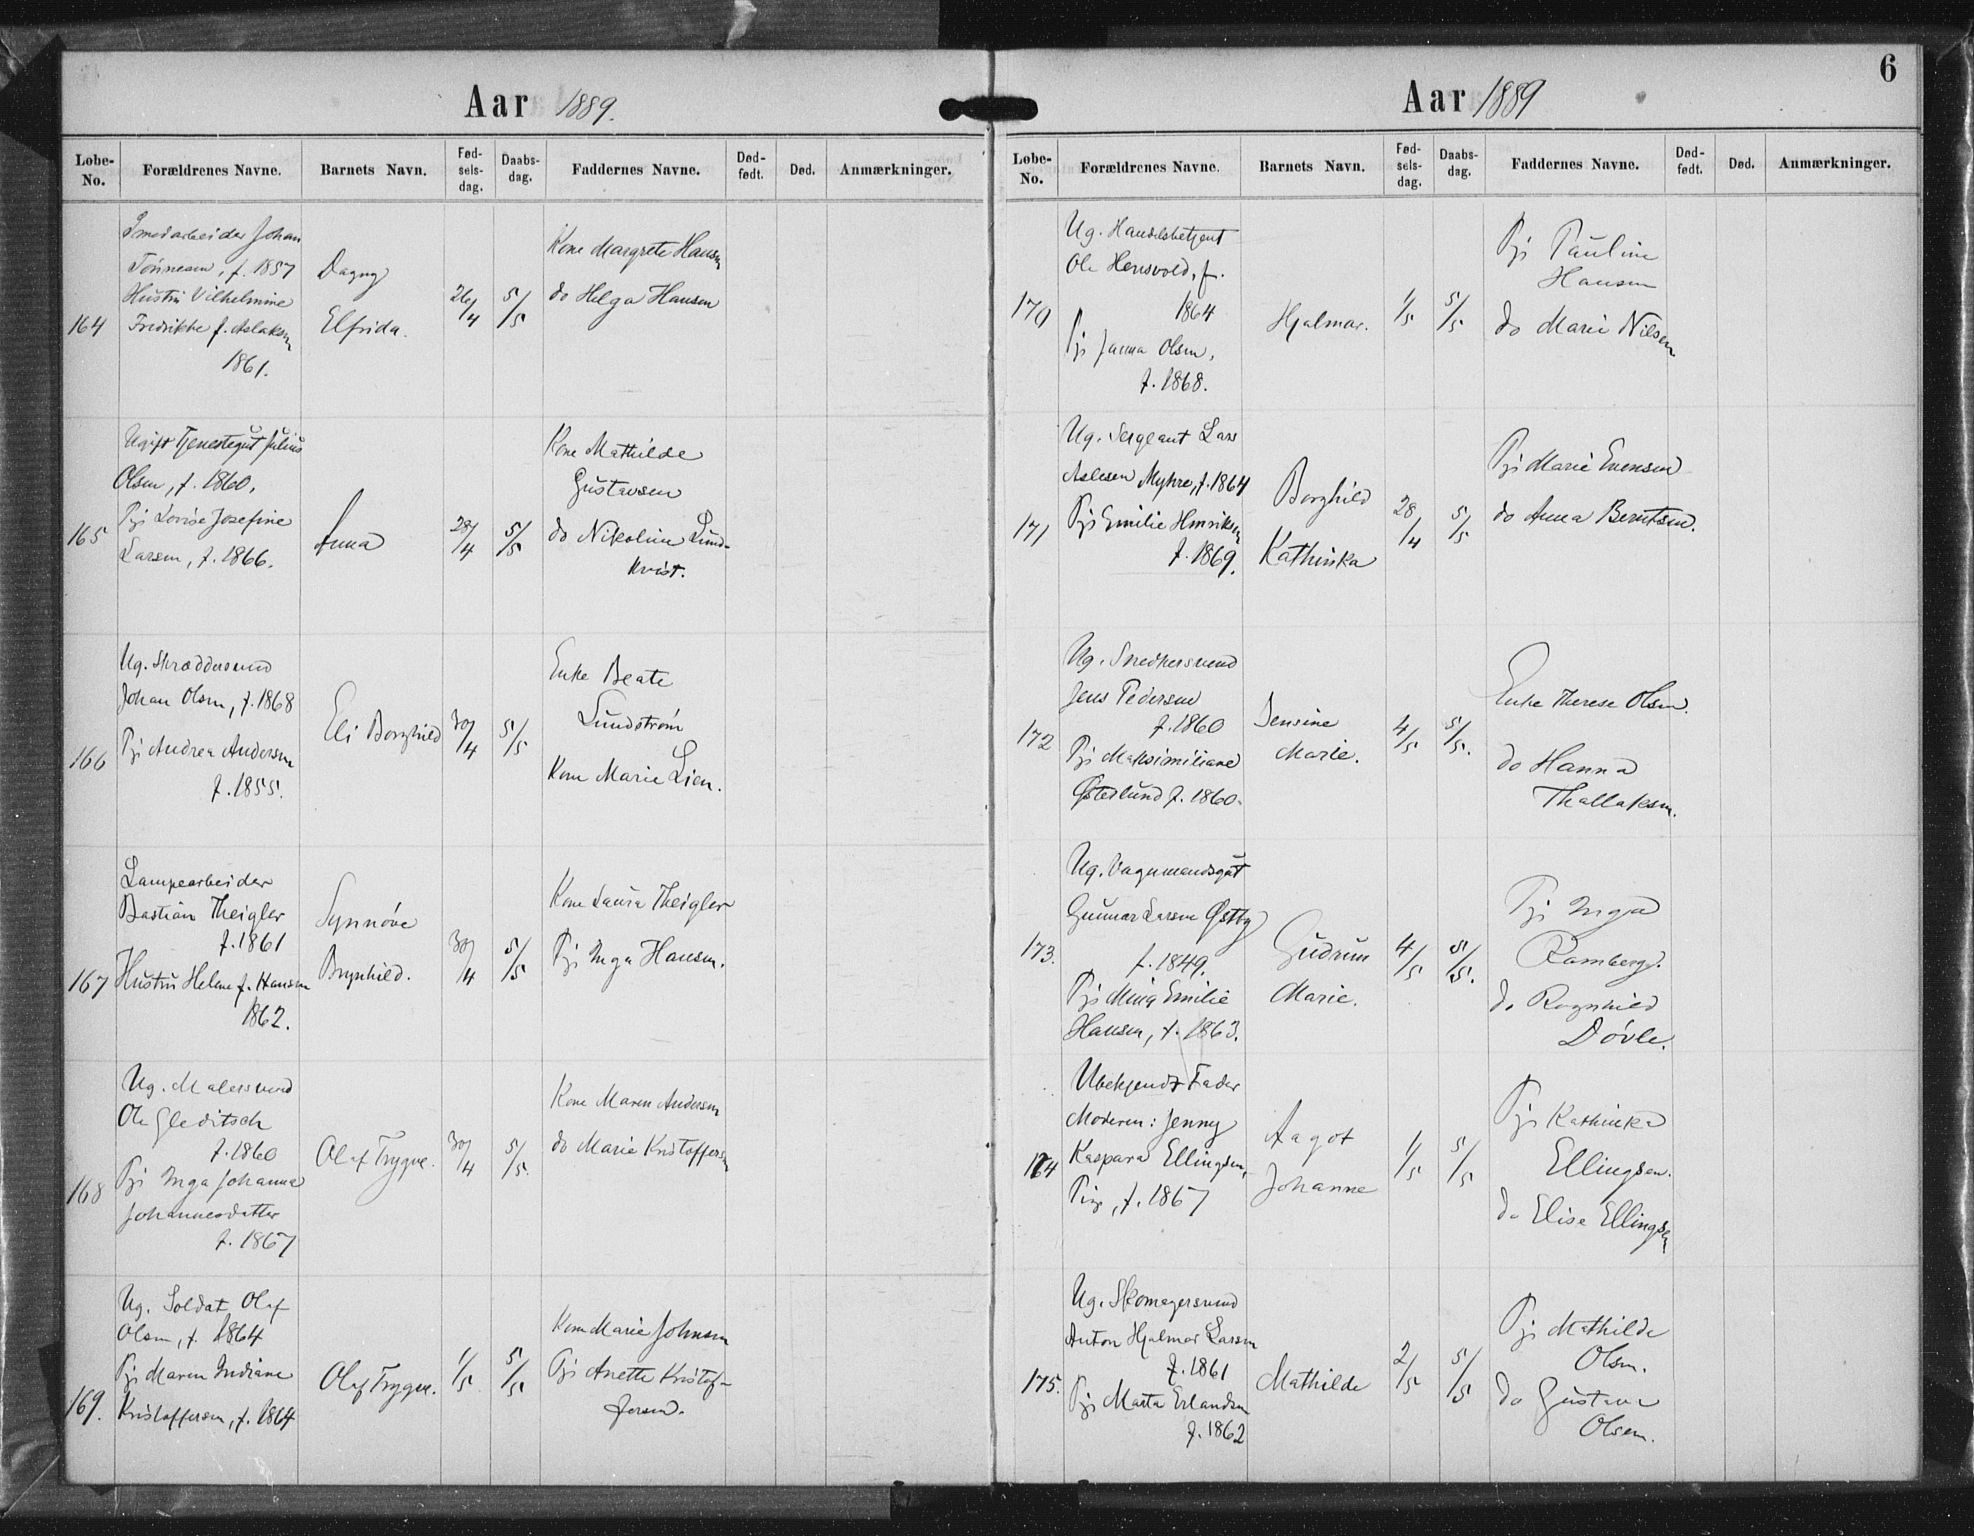 Aar 1889.
Løbe-No. Forældrenes Navne. Barnets Navn. Fød-sels-dag. Daabs-dag. Faddernes Navne. Død-født. Død. Anmærkninger.
164
Smedarbeider Johan
Tønnesen, f. 1857
Hustru Vilhelmine
Fredrikke f. Aslaksen
1861.
Dagny
Elfrida.
26/4
5/5
Kone Margrete Hansen
do Helga Hansen
165
Ugift Tjenestegut Julius
Olsen, f. 1860.
Pje Lovise Josefine
Larsen, f. 1866.
Anna
28/4
5/5
Kone Mathilde
Gustavsen
do Nikoline Lund-
kvist.
166
Ug. Skræddersvend
Johan Olsen, f. 1868
Pje Andrea Andersen
f. 1855.
Eli Borghild
30/4
5/5
Enke Beate
Lundstrøm
Kone Marie Lien.
167
Lampearbeider
Bastian Theigler
f. 1861
Hustru Helene f. Hansen
1862.
Synnøve
Brynhild.
30/4
5/5
Kone Laura Theigler
Pje Inga Hansen.
168
Ug. Malersvend
Ole Gleditsch
f. 1860
Pje Inga Johanna
Johannesdatter
f. 1867
Olaf Trygve.
30/4
5/5.
Kone Maren Andersen
do Marie Kristoffersen
169.
Ug. Soldat Olaf
Olsen, f. 1864
Pje Maren Indiane
Kristoffersen, f. 1864
Olaf Trygve.
1/5
5/5
Kone Marie Johnsen
Pje Anette Kristof-
fersen.
6
Aar 1889
Løbe-No. Forældrenes Navne. Barnets Navn. Fød-sels-dag. Daabs-dag. Faddernes Navne. Død-født. Død. Anmærkninger.
170
Ug. Handelsbetjent
Ole Hersvold, f.
1864
Pje Janna Olsen,
f. 1868.
Hjalmar.
1/5
5/5
Pje Pauline
Hansen
do Marie Nilsen
171
Ug. Sergeant Lars
Aslesen Myhre, f. 1864
Pje Emilie Henriksen
f. 1869.
Borghild
Kathinka
28/4
5/5
Pje Marie Evensen
do Anna Berntsen.
172
Ug. Snedkersvend
Jens Pedersen
f. 1860
Pje Maksimiliane
Østerlund f. 1860.
Jensine
Marie.
4/5
5/5.
Enke Therese Olsen.
do Hanna
Thallaksen.
173.
Ug. Vognmandsgut
Gunnar Larsen Østby
f. 1849.
Pje Mina Emilie
Hansen, f. 1863.
Gudrun
Marie.
4/5
5/5.
Pje Inga
Ramberg.
do Ragnhild
Døvle.
174
Ubekjendt Fader
Moderen: Jenny
Kaspara Ellingsen,
Pige, f. 1867
Aagot
Johanne
1/5
5/5
Pje Kathinka
Ellingsen.
do Elise Ellingsen
175.
Ug. Skomagersvend
Anton Hjalmar Larsen
f. 1861
Pje Marta Erlandsen
f. 1862
Mathilde
2/5
5/5
Pje Mathilde
Olsen.
do Gustava
Olsen.